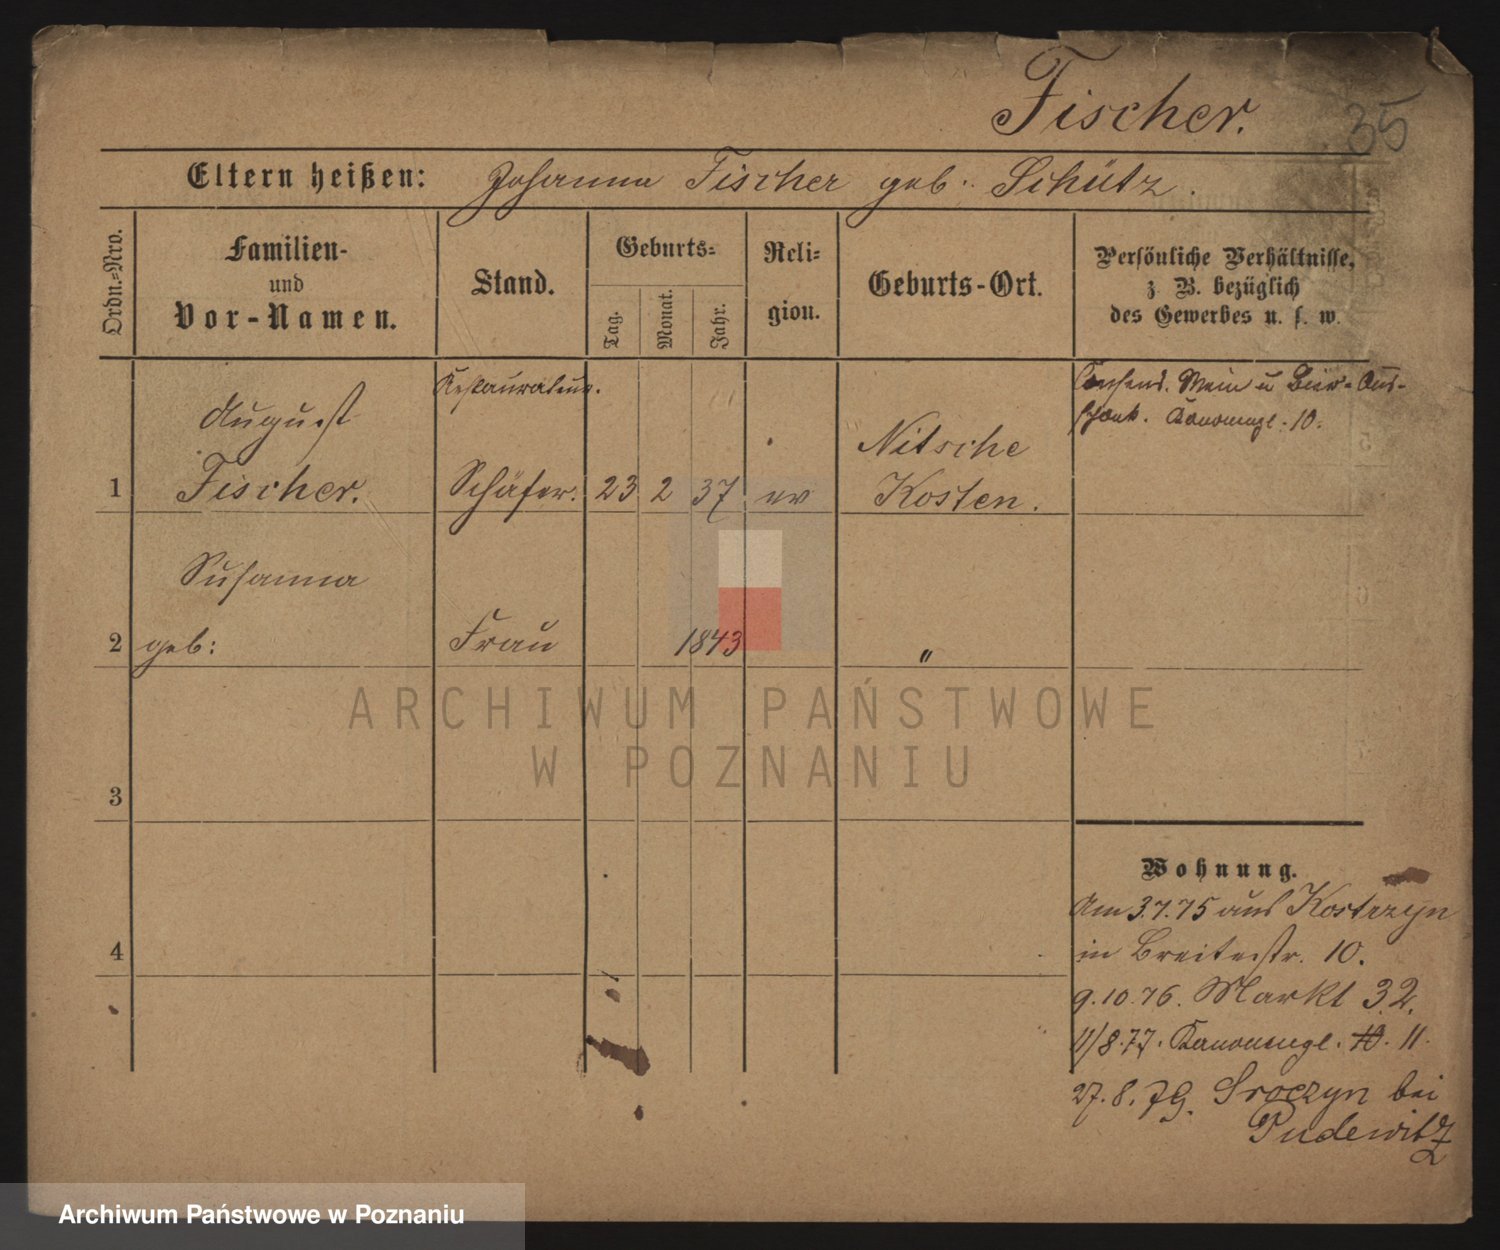 Fischer.
35
Eltern heißen: Johanna Fischer geb. Schütz.
Ordn.=Nro.
Familien-
und
Vor-Namen.
Stand.
Geburts=
Tag.
Monat.
Jahr.
Reli=
gion.
Geburts-Ort.
Persönliche Verhältnisse,
z. B. bezüglich
des Gewerbes u. s. w.
Restaurateur.
Consens. Wein u Bier-Aus-
schank. Kanonengl. 10.
August
Nitsche
1 Fischer. Schäfer. 23 2 37 ev Kosten.
Susanna
2 geb: Frau 1843 "
ARCHIWUM PAŃSTWOWE
W POZNANIU
3
Wohnung.
Am 3.7.75 aus Kostrzyn
4
in Breitestr. 10.
9.10.76. Markt 32.
11/8.77. Kanonengl. 10. 11.
27.8.79. Sroczyn bei
Pudewitz
Archiwum Państwowe w Poznaniu